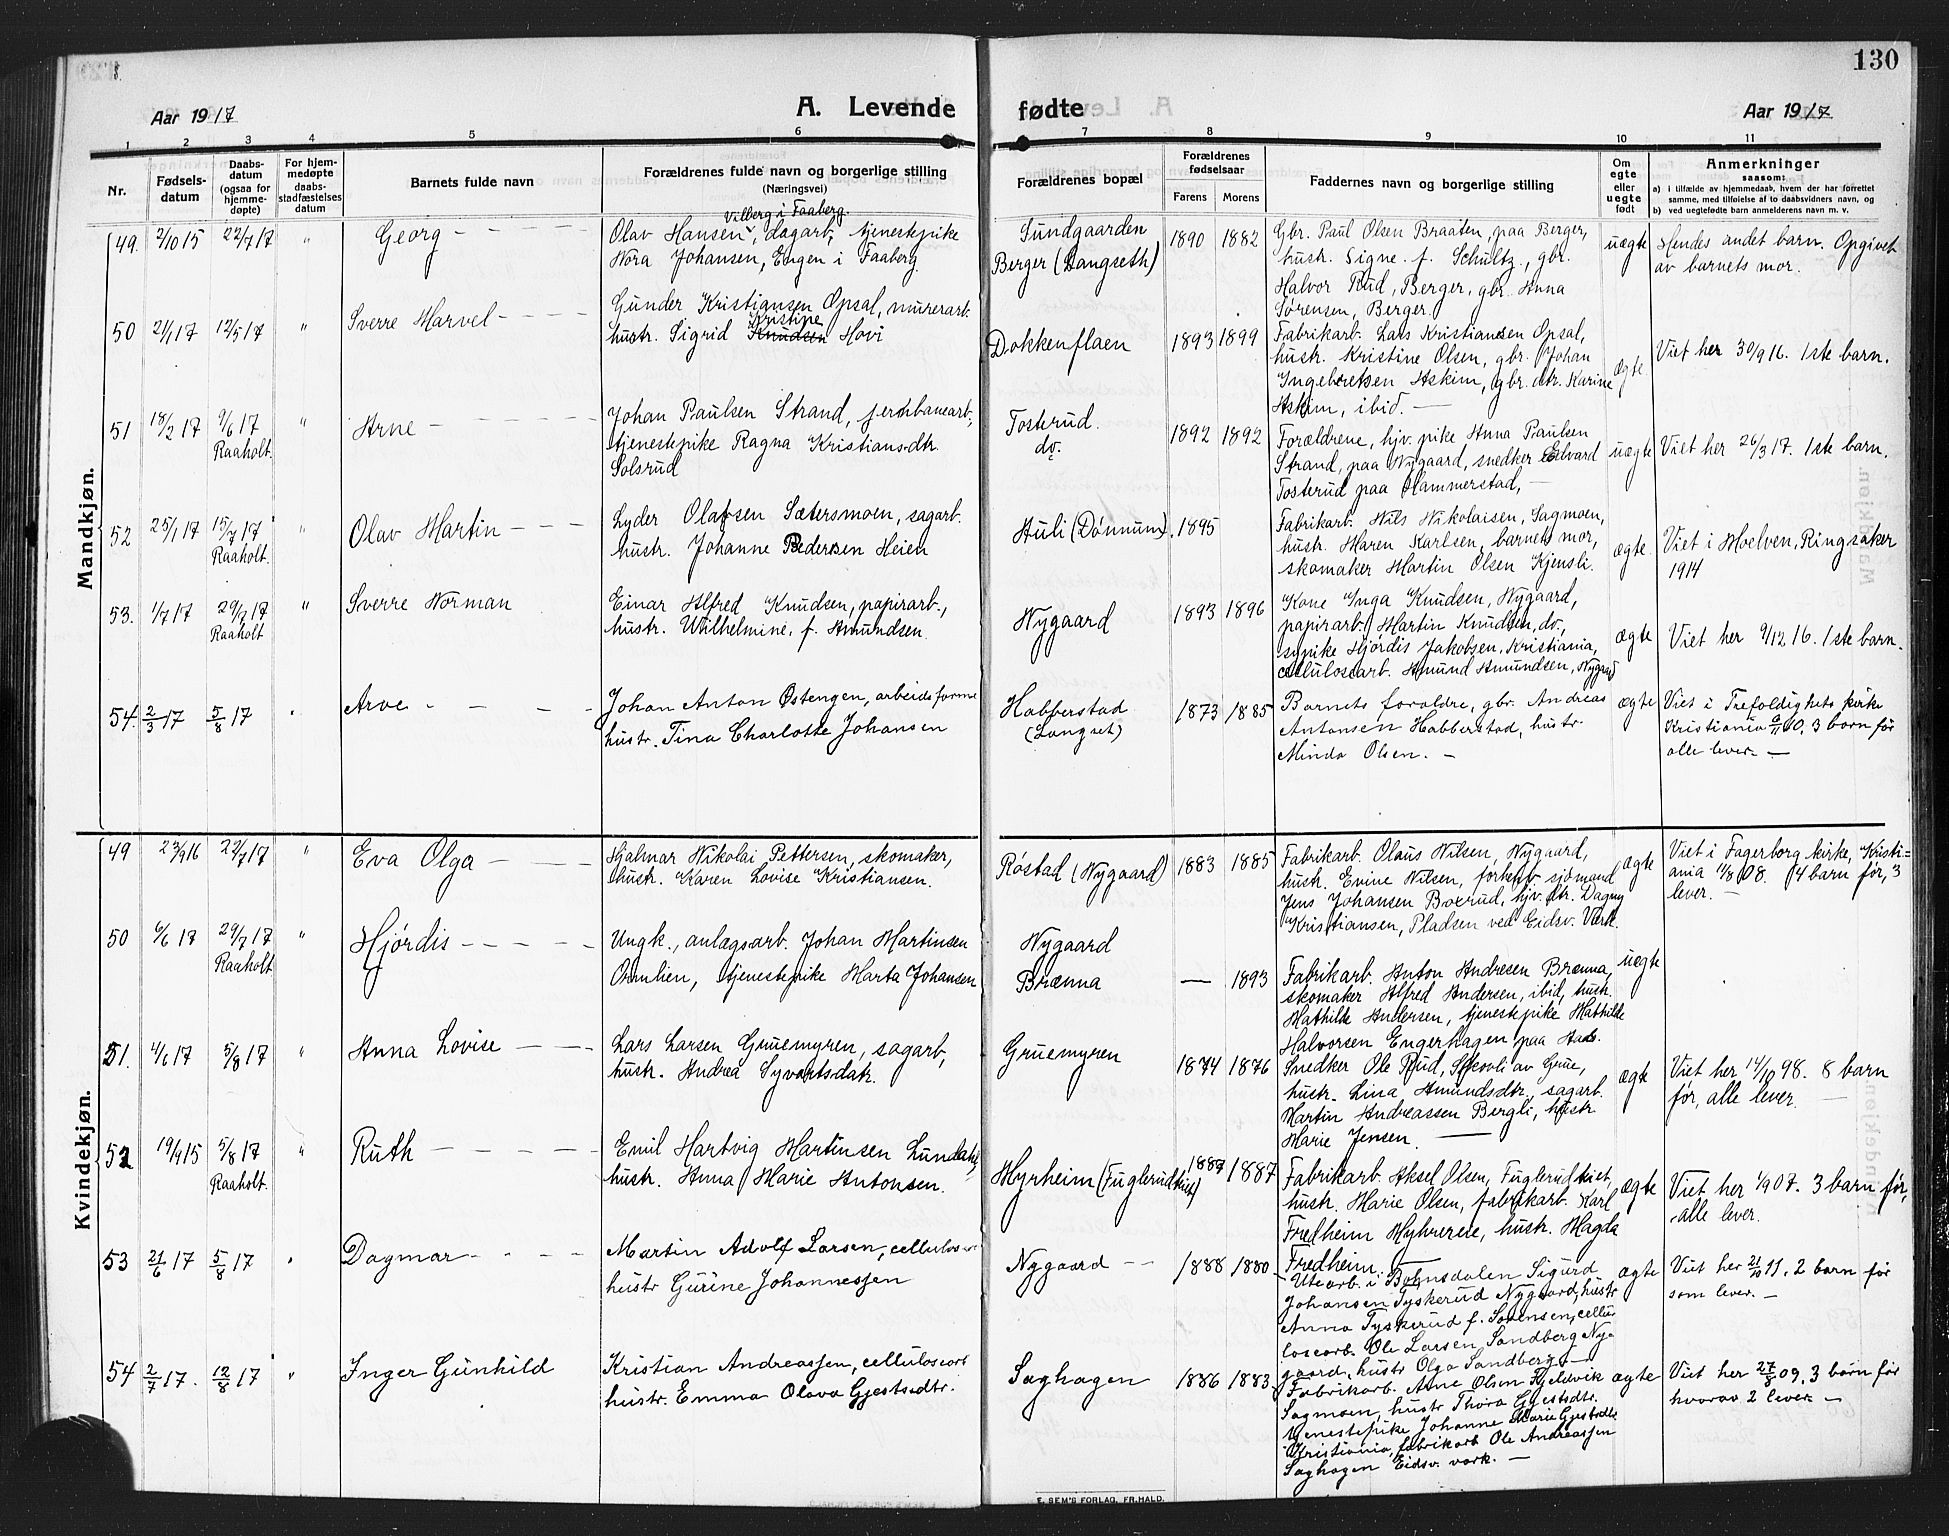 130
Aar 1917
A. Levende fødte
Aar 1917
1 2 3 4 5 6 7 8 9 10 11
Nr.
Fødsels-
datum
Daabs-
datum
(ogsaa for
hjemme-
døpte)
For hjem-
medøpte
daabs-
stadfæstelses
datum
Barnets fulde navn
Forældrenes fulde navn og borgerlige stilling
(Næringsvei)
Forældrenes bopæl
Forældrenes
fødselsaar
Farens Morens
Faddernes navn og borgerlige stilling
Om
egte
eller
uegte
født
Anmerkninger
saasom:
a) i tilfælde av hjemmedaab, hvem der har forrettet
samme, med tilføielse af to daabsvidners navn, og
b) ved uegtefødte barn anmelderens navn m. v.
Mandkjøn.
49. 2/10 15 22/7 17 " Georg
Vilberg i Faaberg
Olav Hansen, dagarb., tjenestepike
Nora Johansen, Engen i Faaberg.
Sundgaarden
Berger (Langseth)
1890 1882
Gbr. Paul Olsen Braaten, paa Berger,
hustr. Signe f. Schultz, gbr.
Halvor Rud, Berger, gbr. Anna
Sørensen, Berger.
uægte
Hendes andet barn. Opgivet
av barnets mor.
50 21/1 17 12/5 17 " Sverre Marvel
Gunder Kristiansen Opsal, murerarb.
Kristine
hustr. Sigrid Knudsen Hovi
Dokkenflaen
1893 1899
Fabrikarb. Lars Kristiansen Opsal,
hustr. Kristine Olsen, gbr. Johan
Ingebretsen Askim, gbr. dtr. Karine
Askim, ibid. —
ægte
Viet her 30/9 16. 1ste barn.
51 18/2 17 9/6 17 " Arne
Raaholt.
Johan Paulsen Strand, jernbanearb.,
tjenestepike Ragna Kristiansdtr.
Solsrud
Tosterud.
do.
1892 1892
Forældrene, hjv. pike Anna Paulsen
Strand, paa Nygaard, snedker Edvard
Tosterud paa Hammerstad, —
uægte
Viet her 26/3 17. 1ste barn.
52 25/1 17 15/7 17 Olav Martin
Raaholt.
Lyder Olafsen Sætersmoen, sagarb.
hustr. Johanne Pedersen Heien
Huli (Dønnum). 1895
Fabrikarb. Nils Nikolaisen, Sagmoen,
hustr. Maren Karlsen, barnets mor,
skomaker Martin Olsen Kjensli.
ægte.
Viet i Moelven, Ringsaker
1914
53. 1/7 17 29/7 17 " Sverre Norman
Raaholt
Einar Alfred Knudsen, papirarb.,
hustr. Wilhelmine, f. Amundsen.
Nygaard
1893 1896
Kone Inga Knudsen, Nygaard,
papirarb. Martin Knudsen, do.,
sypike Hjørdis Jakobsen, Kristiania,
cellulosearb. Amund Amundsen, Nygaard
ægte
Viet her 9/12 16. 1ste barn.
54. 2/3 17 5/8 17 " Arve
Johan Anton Østengen, arbeidsforme
hustr. Tina Charlotte Johansen
Habberstad
(Langset)
1873 1885
Barnets foraldre, gbr. Andreas
Antonsen Habberstad, hustr
Minda Olsen. —
ægte
Viet i Trefoldighets kirke
Kristiania 9/11 10. 3 barn før
alle lever. —
Kvindekjøn.
49 23/9 16 22/7 17 " Eva Olga
Hjalmar Nikolai Pettersen, skomaker,
hustr. Karen Lovise Kristiansen.
Røstad (Nygaard) 1883 1885
Fabrikarb. Olaus Nilsen, Nygaard,
hustr. Evine Nilsen, forhenv. sjømand
Jens Johansen Boxrud, hjv. dtr. Dagny
Kristiansen, Pladsen ved Eidsv. Værk.
ægte
Viet i Fagerborg kirke, Kristi=
ania 1/8 08. 4 barn før, 3
lever. —
50 6/6 17 29/7 17 " Hjørdis
Raaholt
Ungk., anlægsarb. Johan Martinsen
Ormlien, tjenestepike Marta Johansen
Nygaard
Brænna
— 1893
Fabrikarb. Anton Andresen Brænna,
skomaker Alfred Andersen, ibid, hustr.
Mathilde Andersen, tjenestepike Mathilde
Halvorsen Engerhagen, paa Aas.
uægte
51. 4/6 17 5/8 17 " Anna Lovise
Lars Larsen Gruemyren, sagarb,
hustr. Andrea Syvertsdatr.
Gruemyren
1874 1876
Snedker Ole Rud, Skovli av Grue,
hustr. Lina Amundsdtr, sagarb.
Martin Andreassen Bergli, hustr.
Marie Jensen. —
ægte
Viet her 14/10 98. 8 barn
før, alle lever. —
52 19/9 15 5/8 17 " Ruth
Raaholt.
Emil Hartvig Martinsen Lundahl,
hustr. Anna Marie Antonsen.
Myrheim (Fuglerudkiet) 1887 1887
Fabrikarb. Aksel Olsen, Fuglerudkiet,
hustr. Marie Olsen, fabrikarb. Karl
Fredheim Myhrereie, hustr. Magda
Fredheim. —
ægte
Viet her 1/9 07. 3 barn før,
alle lever.
53 21/6 17 5/8 17 " Dagmar
Martin Adolf Larsen, cellulosear
hustr Gurine Johannessen
Nygaard
1888 1880
Utearb. i Bøhnsdalen Sigurd
Johansen Tyskerud Nygaard, hustr
Anna Tyskerud f. Sørensen, cellu
losearb. Ole Larsen Sandberg Ny
gaard, hustr Olga Sandberg. —
ægte
Viet her 21/10 11. 2 barn før
som lever. —
54 2/7 17. 12/8 17 " Inger Gunhild
Kristian Andreassen, cellulosearb
hustr. Emma Olava Gjestsdtr.
Saghagen
1886 1883.
Fabrikarb. Arne Olsen Kjeldvik
Sagmoen, hustr Thora Gjestsdtr.
Tjenestepike Johanne Marie Gjestsdtr
Kristiania, fabrikarb Ole Andreassen
Saghagen Eidsv. værk. —
ægte
Viet her 27/8 09. 3 børn før
hvorav 2 lever. —
E. SEM'S FORLAG, FR.HALD.